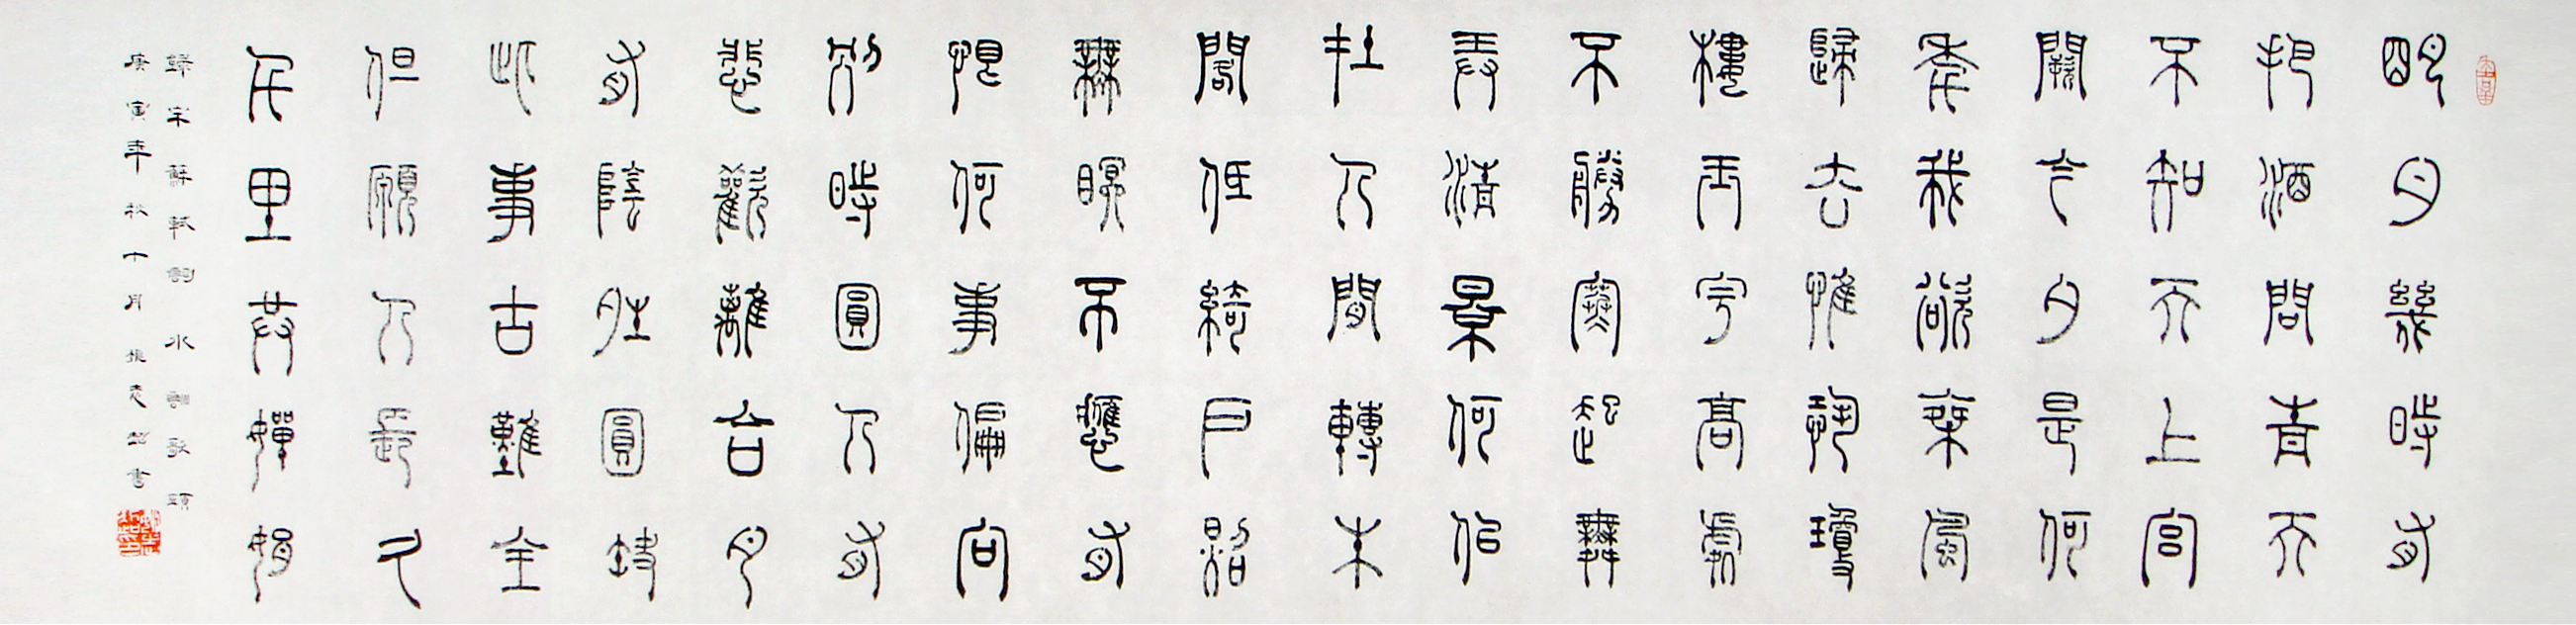 明月幾時有
把酒問青天
不知天上宮
闕今夕是何
年我欲乘風
歸去惟恐瓊
樓玉宇高處
不勝寒起舞
弄清景何似
在人間轉朱
閣低綺戶照
無眠不應有
恨何事偏向
別時圓人有
悲歡離合月
有陰晴圓缺
此事古難全
但願人長久
千里共嬋娟
錄宋蘇軾詞水調歌頭
庚寅年秋十月書